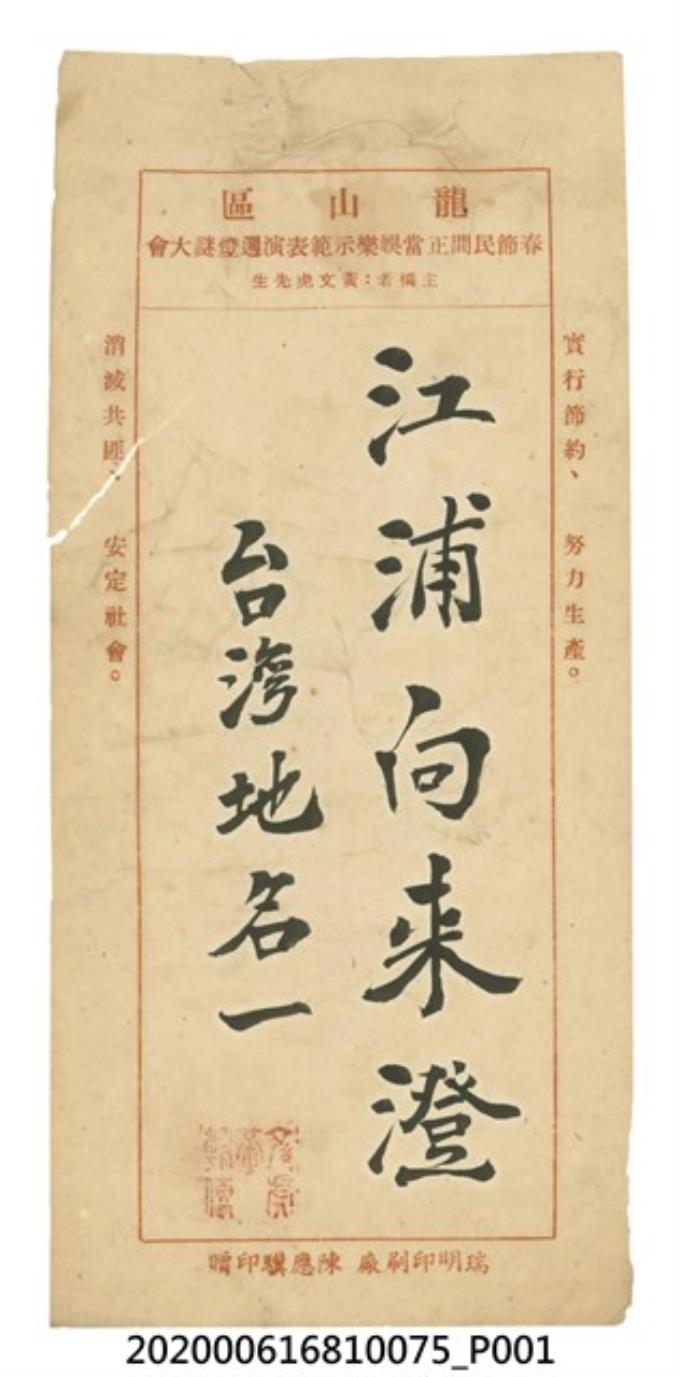 龍山區
春節民間正當娛樂示範表演週燈謎大會
主稿者：黃文虎先生
實行節約、 努力生產。
江浦向来澄
台湾地名一
消滅共匪、 安定社會。
瑞明印刷廠 陳應騏印贈
202000616810075_P001